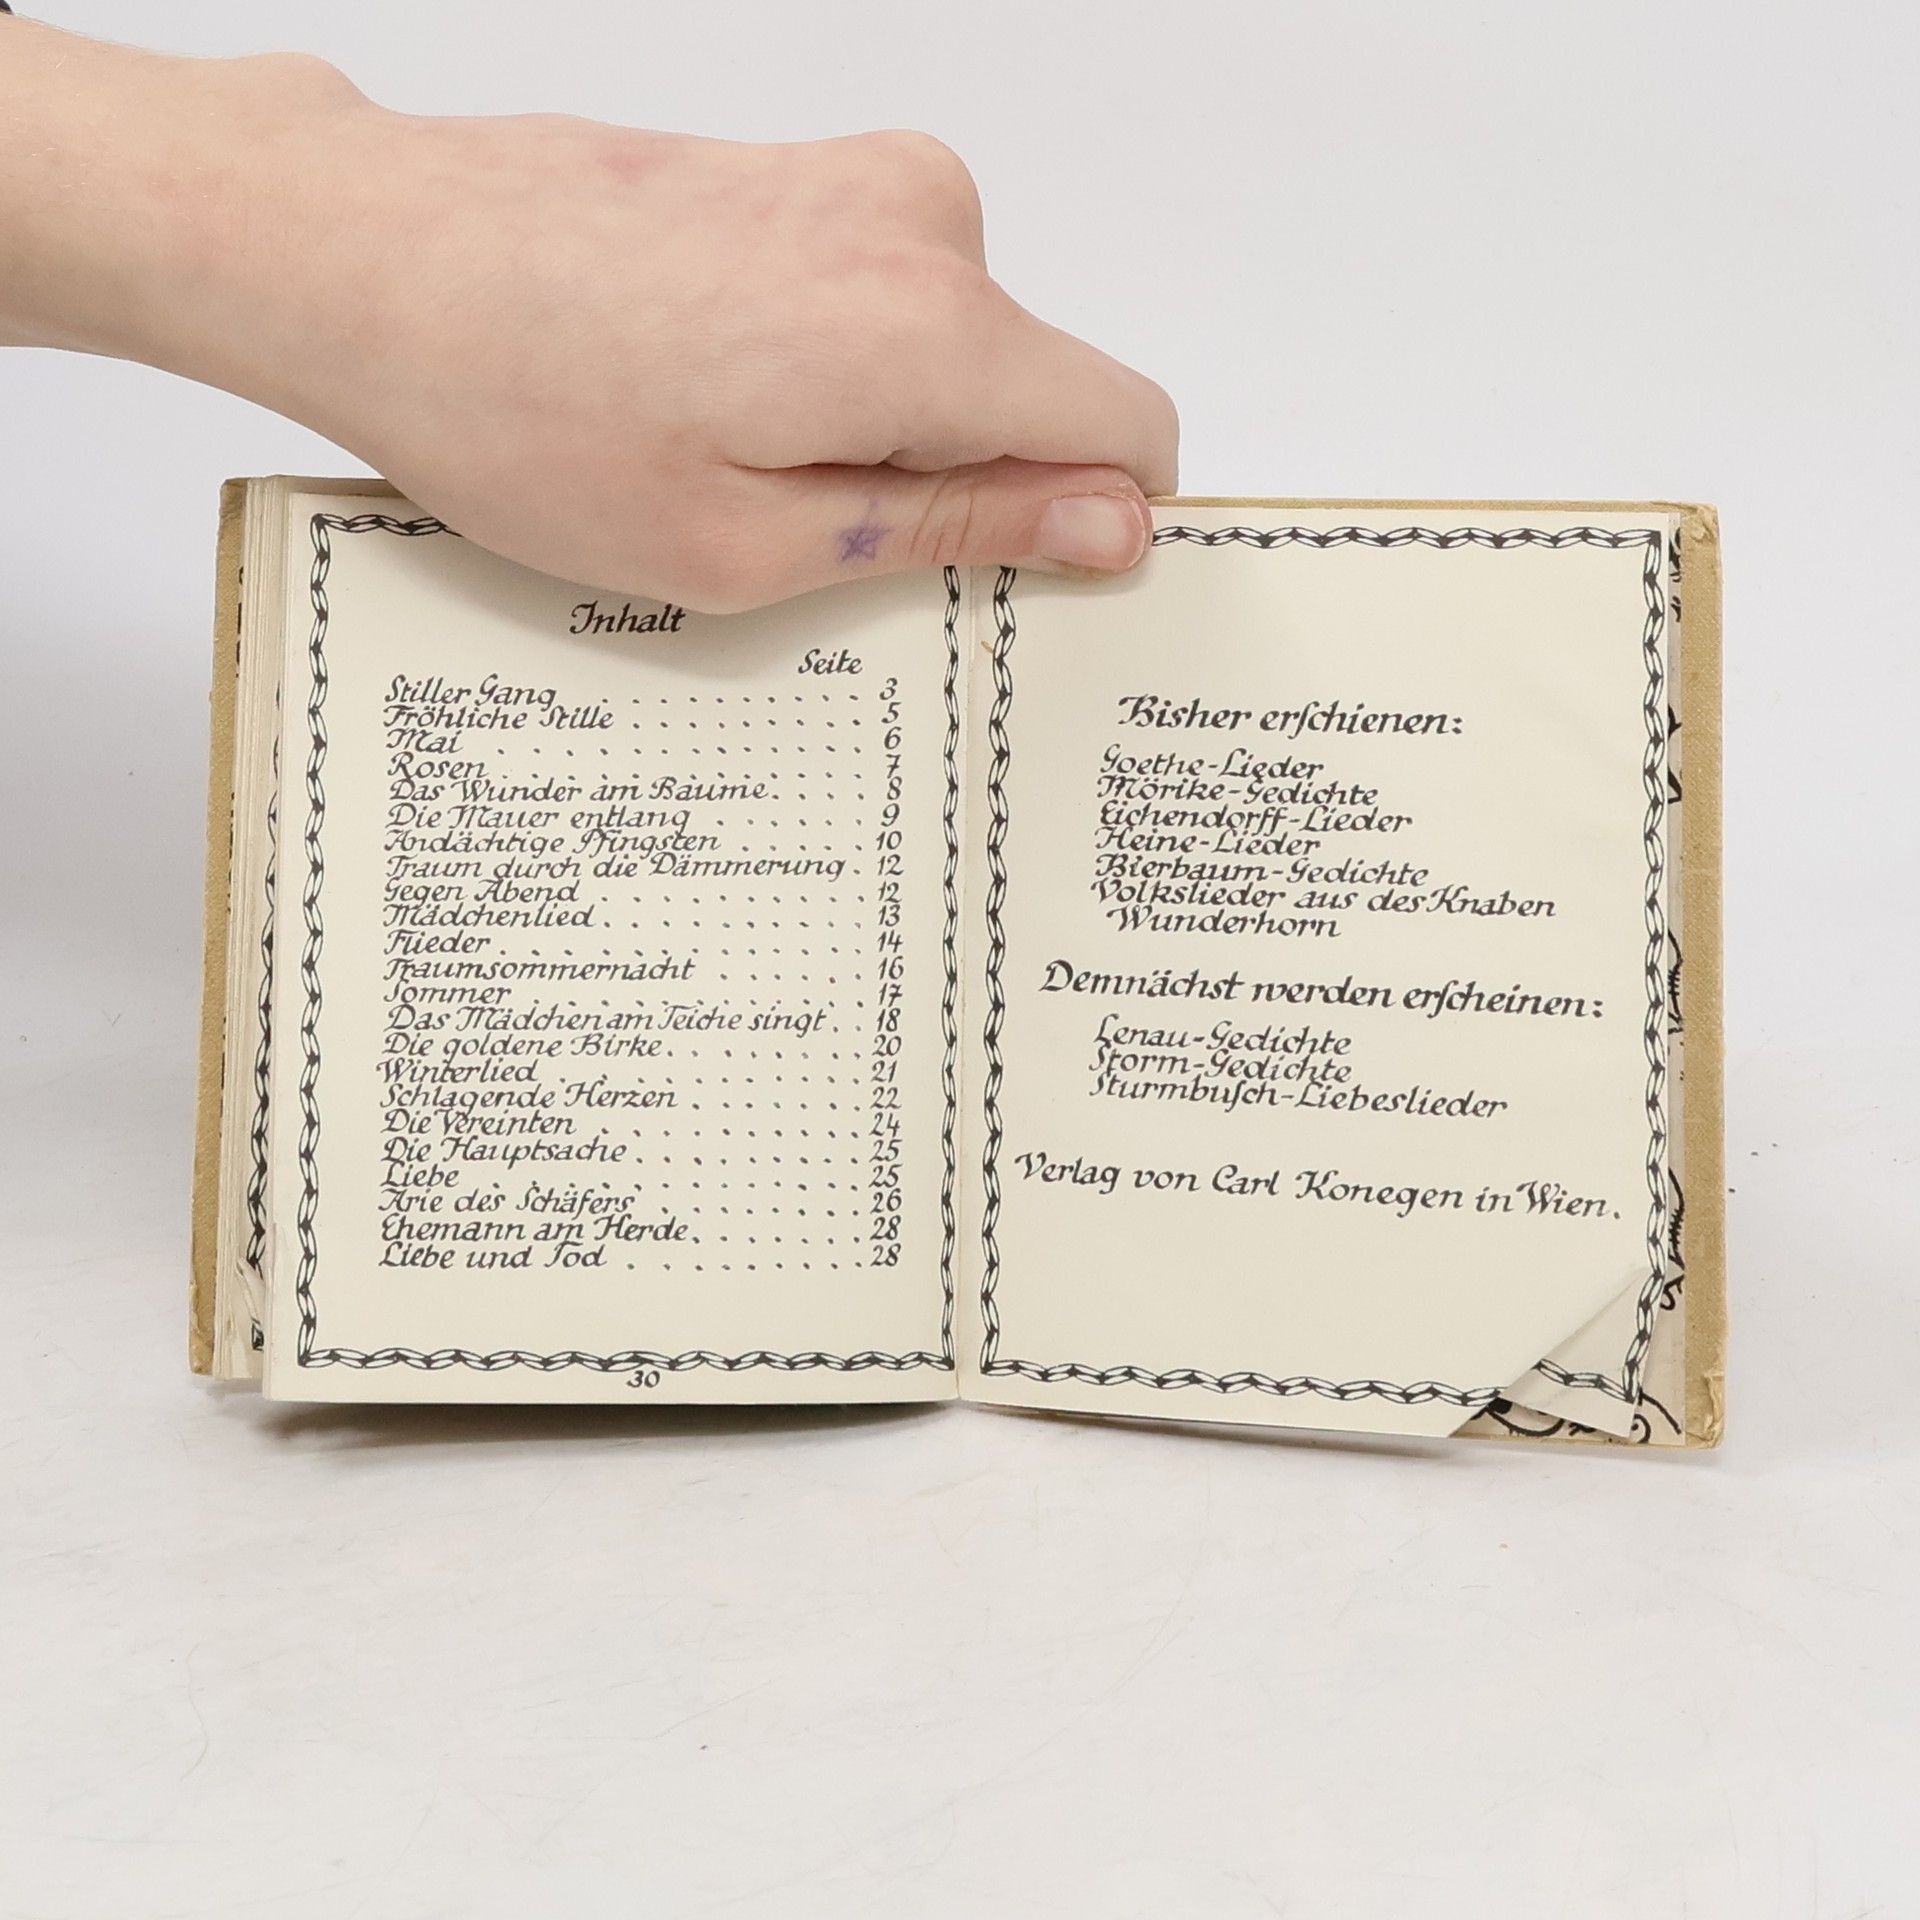 Inhalt
Seite
Stiller Gang . . . . . . . . . 3
Fröhliche Stille . . . . . . . . 5
Mai . . . . . . . . . . . . 6
Rosen . . . . . . . . . . . 7
Das Wunder am Baume. . . . 8
Die Mauer entlang . . . . . . 9
Andächtige Pfingsten . . . . . 10
Traum durch die Dämmerung . 12
Gegen Abend . . . . . . . . . 12
Mädchenlied . . . . . . . . . 13
Flieder . . . . . . . . . . . 14
Traumsommernacht . . . . . . 16
Sommer . . . . . . . . . . . 17
Das Mädchen am Teiche singt . . 18
Die goldene Birke . . . . . . . 20
Winterlied . . . . . . . . . . 21
Schlagende Herzen . . . . . . 22
Die Vereinten . . . . . . . . . 24
Die Hauptsache . . . . . . . . 25
Liebe . . . . . . . . . . . . 25
Arie des Schäfers . . . . . . . 26
Ehemann am Herde . . . . . . 28
Liebe und Tod . . . . . . . . 28
30
Bisher erſchienen:
Goethe-Lieder
Mörike-Gedichte
Eichendorff-Lieder
Heine-Lieder
Bierbaum-Gedichte
Volkslieder aus des Knaben
Wunderhorn
Demnächst werden erſcheinen:
Lenau-Gedichte
Storm-Gedichte
Sturmbuſch-Liebeslieder
Verlag von Carl Konegen in Wien.